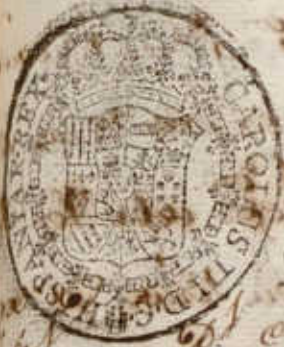 CAROLUS III D. G. HISPANIAR. REX